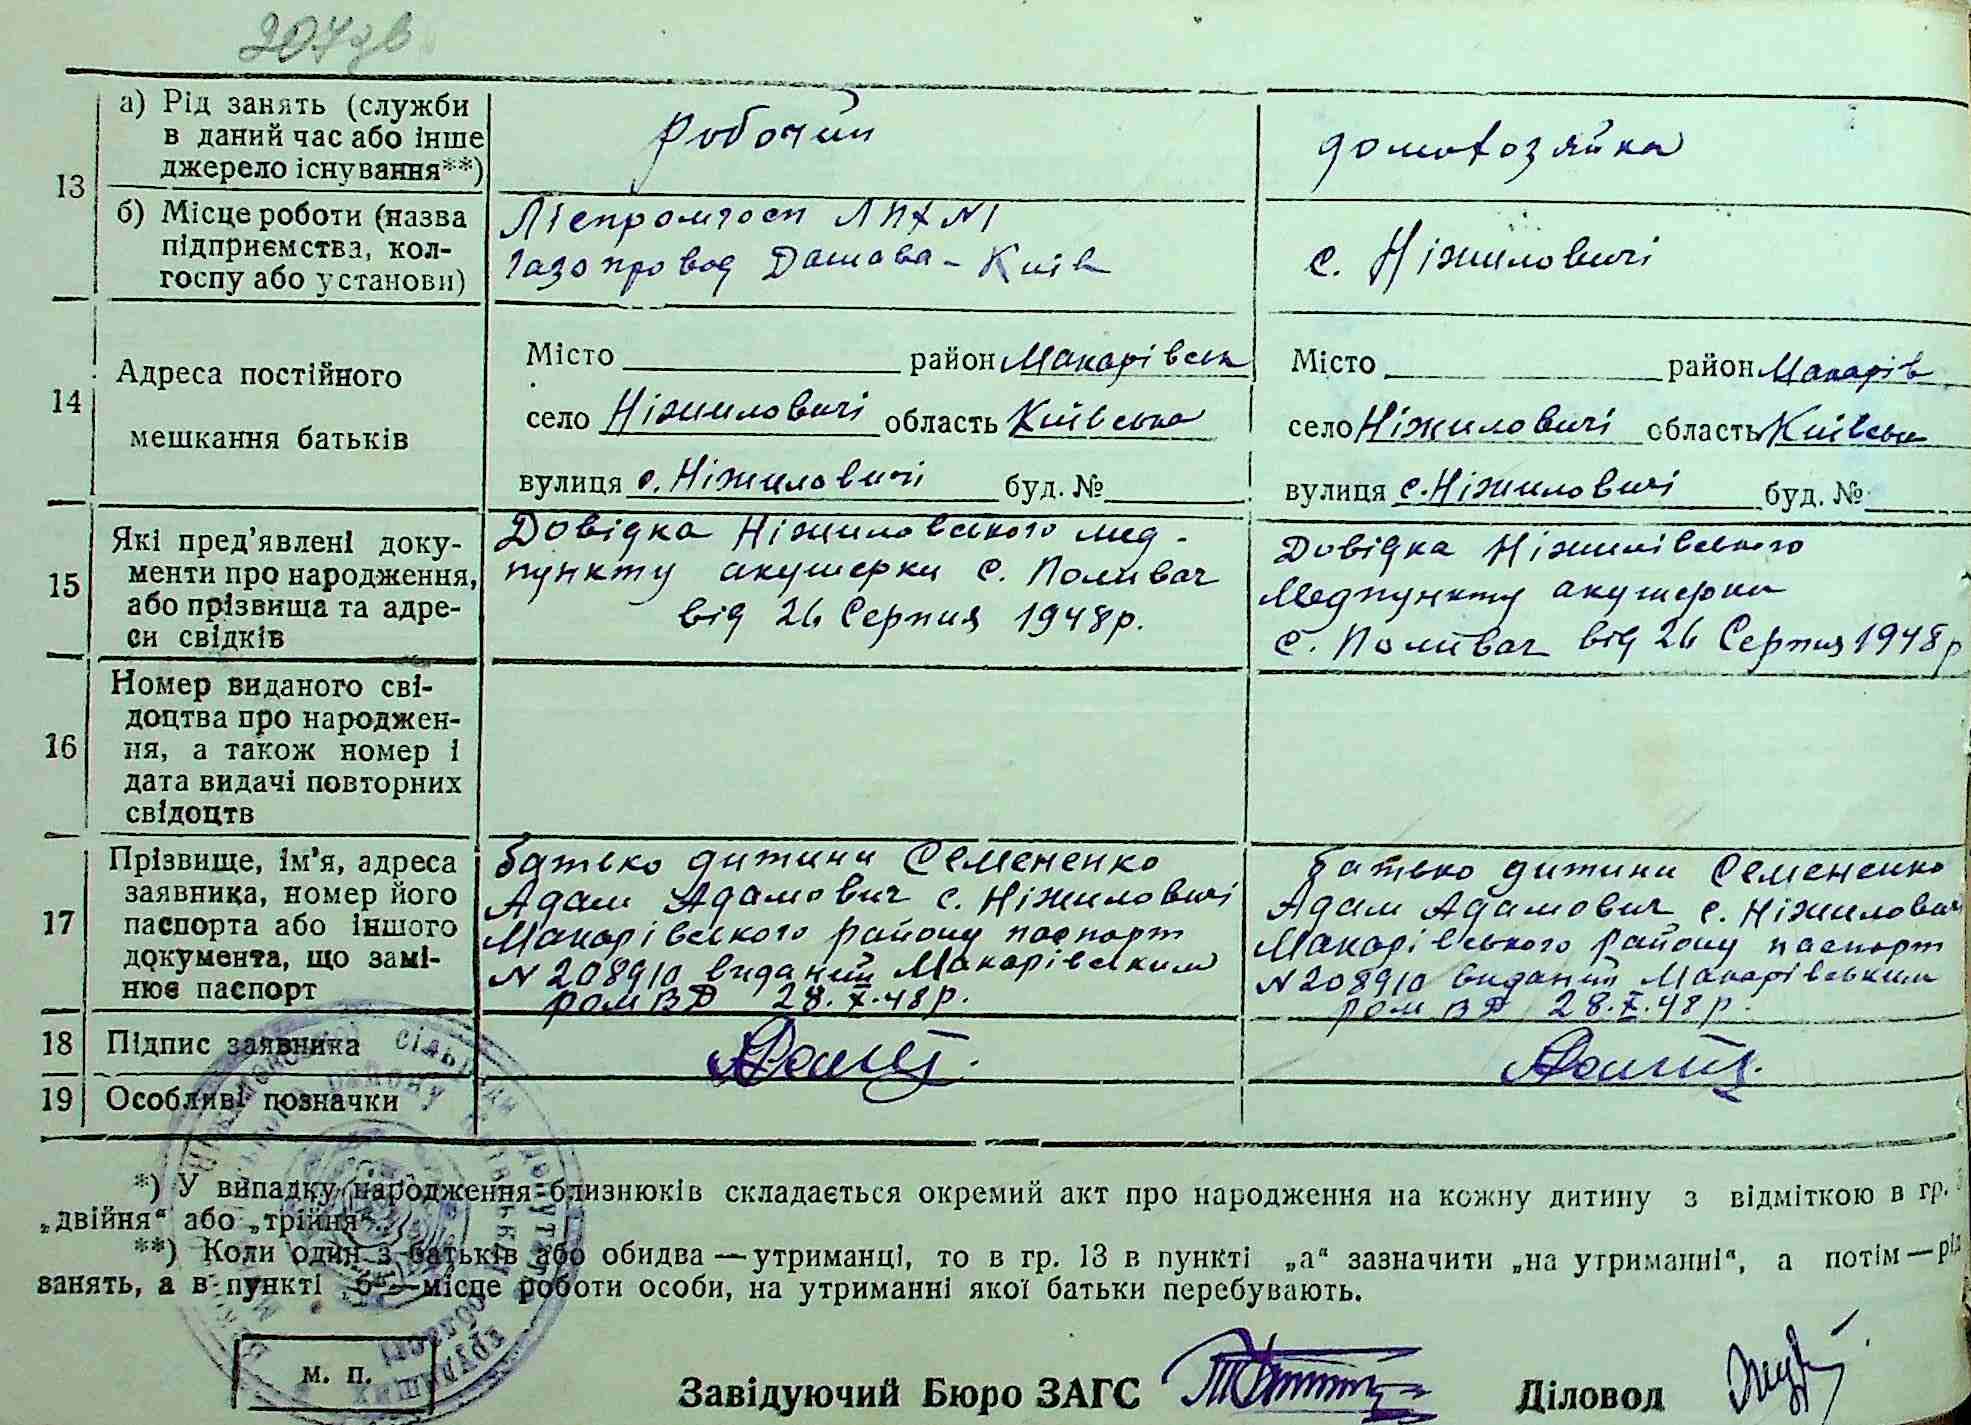 207 зв
13
а) Рід занять (служби
в даний час або інше
джерело існування**)
робочий
домохозяйка
б) Місце роботи (назва
підприємства, кол-
госпу або установи)
Ліспромгосп ЛПХ №1
газопровод Дашава - Київ
с. Ніжиловичі
14
Адреса постійного
мешкання батьків
Місто район Макарівськ
село Ніжиловичі область Київська
вулиця с. Ніжиловичі буд. №
Місто район Макарів
село Ніжиловичі область Київськ
вулиця с. Ніжиловичі буд. №
15
Які пред'явлені доку-
менти про народження,
або прізвища та адре-
си свідків
Довідка Ніжиловського мед-
пункту акушерки С. Поливач
від 26 Серпня 1948р.
Довідка Ніжилівського
Медпункту акушерки
С. Поливач від 26 Серпня 1948р
16
Номер виданого сві-
доцтва про народжен-
ня, а також номер і
дата видачі повторних
свідоцтв
17
Прізвище, ім'я, адреса
заявника, номер його
паспорта або іншого
документа, що замі-
нює паспорт
батько дитини Семененко
Адам Адамович с. Ніжиловичі
Макарівського району паспорт
N 208910 виданий Макарівським
РОМВД 28.X.48р.
батько дитини Семененко
Адам Адамович с. Ніжиловичі
Макарівського району паспорт
N 208910 виданий Макарівським
РОМ ВД 28.X.48р.
18 Підпис заявника
19 Особливі позначки
*) У випадку народження близнюків складається окремий акт про народження на кожну дитину з відміткою в гр.
„двійня“ або „трійня“.
**) Коли один з батьків або обидва — утриманці, то в гр. 13 в пункті „а“ зазначити „на утриманні“, а потім — рід
занять, а в пункті „б“ — місце роботи особи, на утриманні якої батьки перебувають.
м. п.
Завідуючий Бюро ЗАГС
Діловод